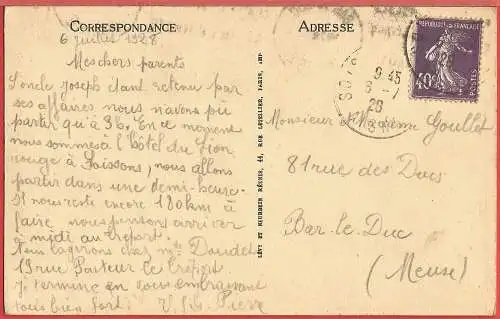 CORRESPONDANCE
6 juillet 1928
Mes chers parents
L'oncle Joseph étant retenu par
ses affaires nous n'avons pu
partir qu'à 3h. En ce moment
nous sommes à l'hôtel du Lion
rouge à Soissons, nous allons
partir dans une demi-heure.
Il nous reste encore 180 km à
faire nous pensons arriver
à midi au Tréport.
Nous logerons chez Mme Doudet
13 rue Pasteur le Tréport
Je termine en vous embrassant
tous bien fort. V. fils Pierre
LÉVY ET NEURDEIN RÉUNIS, 44, RUE LETELLIER, PARIS, IMP.
ADRESSE
REPUBLIQUE FRANÇAISE
40c
POSTES
9 45
6 - 7
28
Monsieur et Madame Goullet
81 rue des Ducs
Bar-le-Duc
(Meuse)